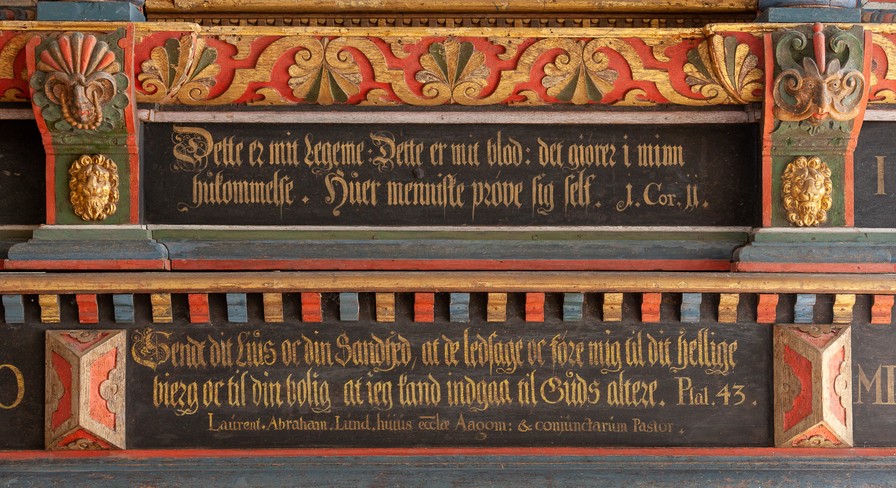 Dette er mit Legeme: Dette er mit blod: det giører i minn
hukommelse. Huer menniske prøve sig self. 1. Cor. 11.
I
Send dit Lius oc din Sandhed, at de ledsage oc føre mig til dit hellige
O
bierg oc til din bolig at ieg kand indgaa til Guds altere. Psal. 43.
MI
Laurent. Abraham. Lund. huius ecclæ Aagom: & conjunctarum Pastor.